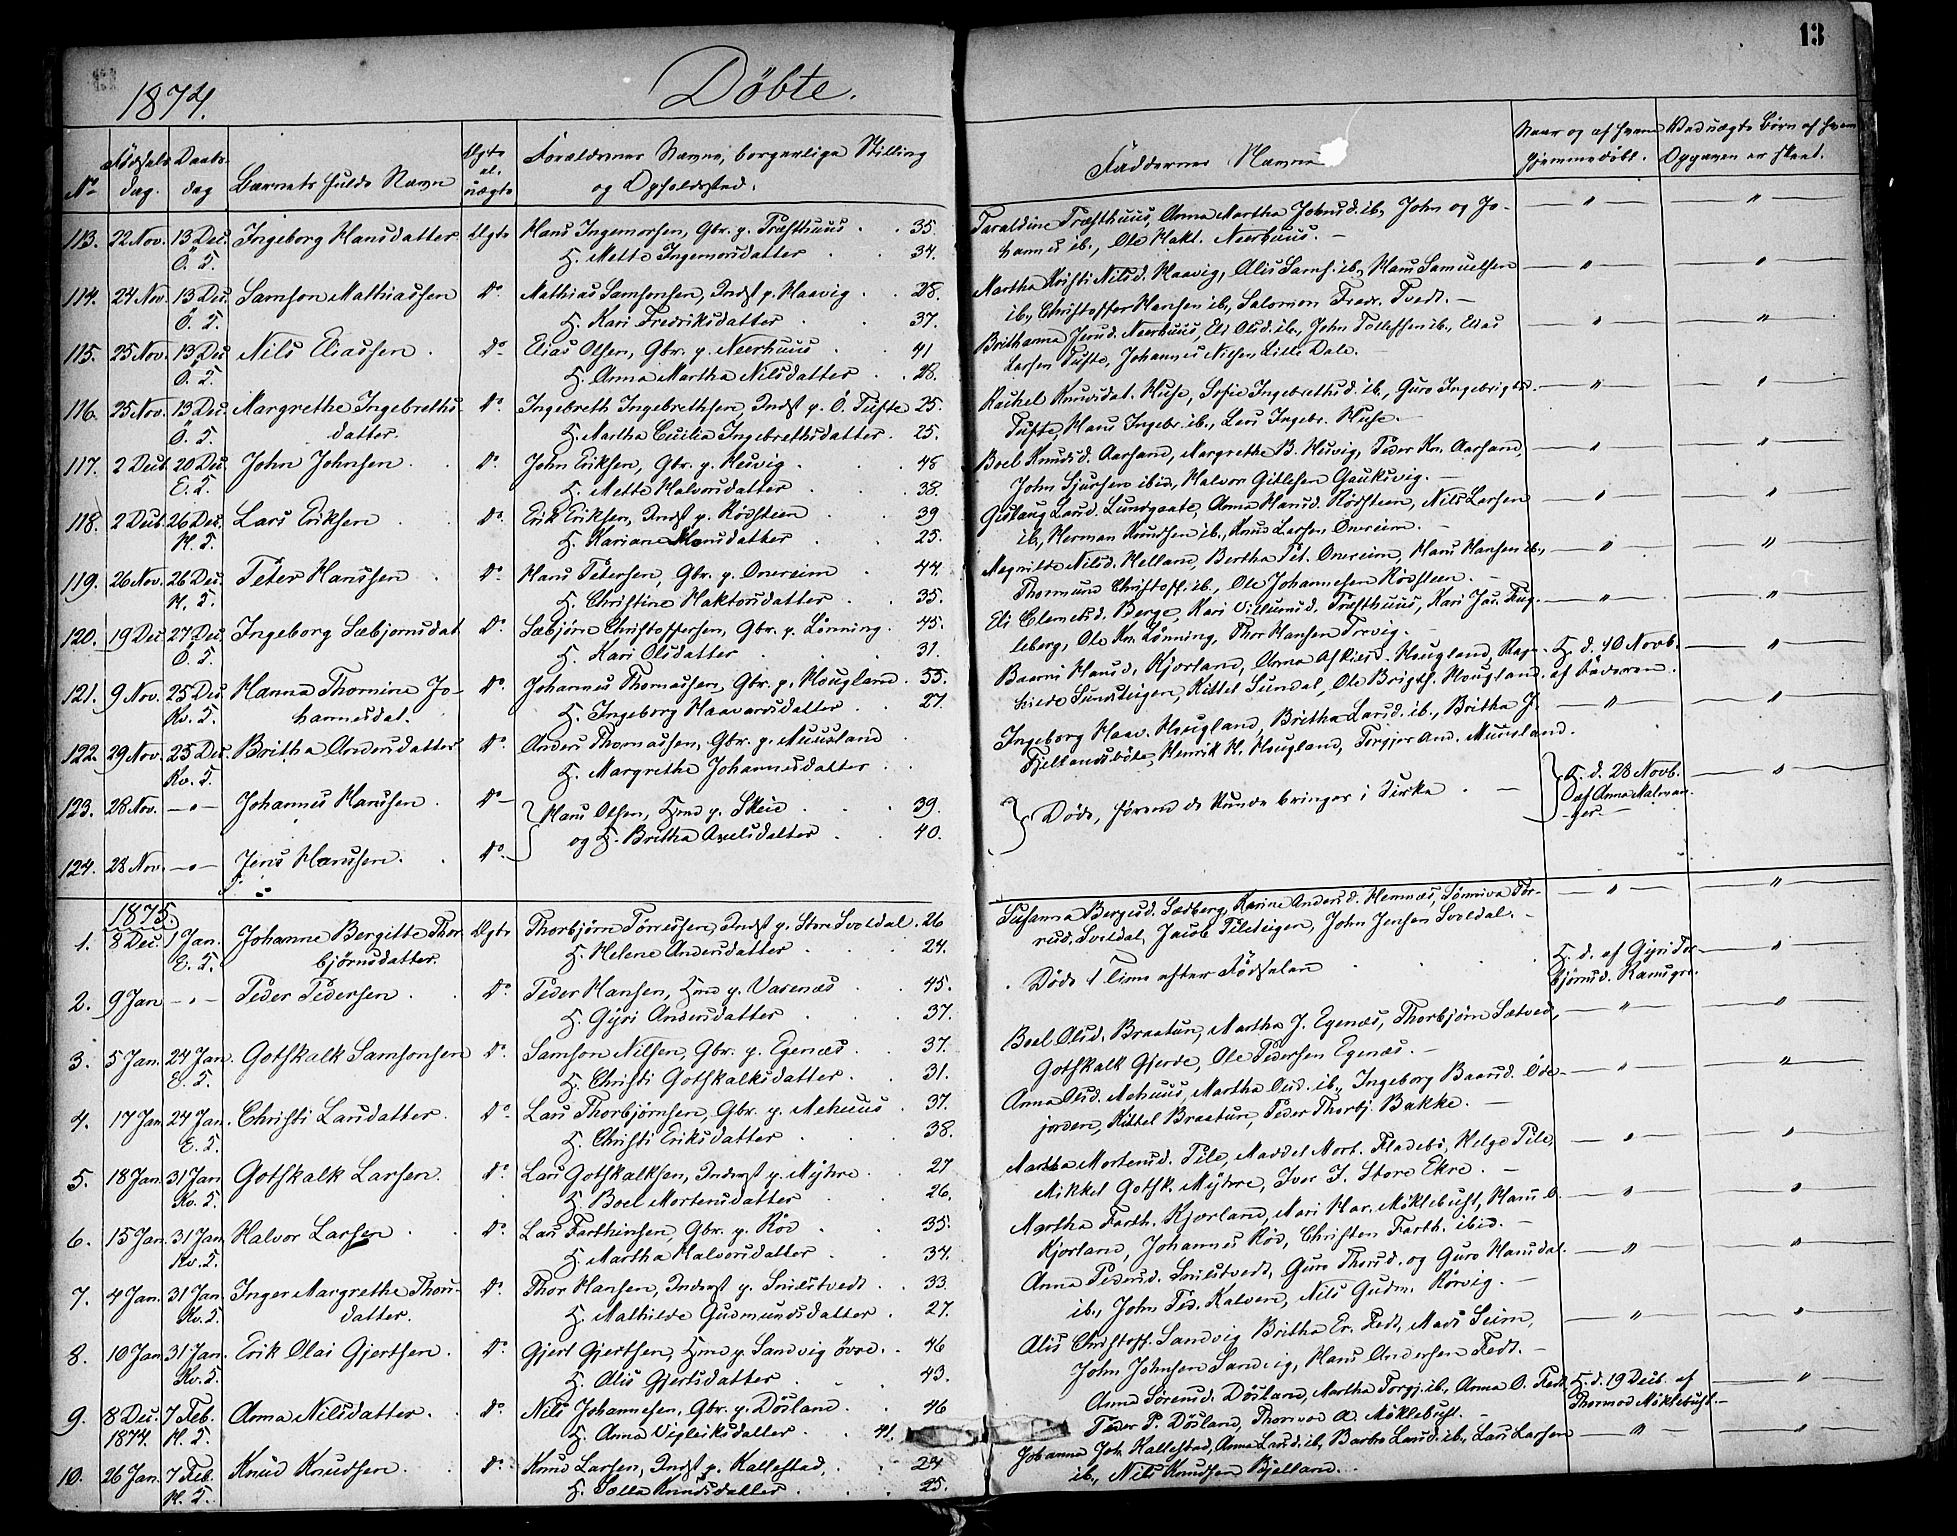 13
1874.
Döbte.
No
Födsels dag.
Daabs dag
Barnets fulde Navn
Ægte el. uægte
Forældrenes Navne, borgerlige Stilling og Opholdssted.
Faddernes Navne
Naar og af hvem hjemmedöbt.
Uægte Börn af hvem Opgaven er skeet.
113. 22 Nov. 13 Dec. Ingeborg Hansdatter Ægte Hans Ingemorsen, Gbr. p. Træsthuus 35.
Ö. T. H. Mette Ingemorsdatter 34.
Taraldine Træsthuus, Anna Martha Johnsd. ib., John og Jo-
hannes ib., Ole Hakt. Neerhuus.
114. 24 Nov. 13 Dec. Samson Mathiassen Do Mathias Samsonsen, Indst p. Haavig 28.
Ö. T. H. Kari Fredriksdatter 37.
Martha Kristi Nilsd. Haavig, Alis Sams. ib., Hans Samuelsen
ib., Christoffer Hansen ib., Salomon Fredr. Tvedt.
115. 25 Nov. 13 Dec Nils Eliassen Do Elias Olsen, Gbr. p. Neerhuus 41
Ö. T. H. Anna Martha Nilsdatter 28.
Brithanna Neerhuus, Eli Olsd. ib., John Tollefsen ib., Elias
Larsen Tufte, Johannes Nilsen Lille Dale.
116. 25 Nov. 13 Dec. Margrethe Ingebreths- Do Ingebreth Ingebrethsen, Indst p. Ö. Tufte 25.
Ö. T. datter. H. Martha Cecilia Ingebrethsdatter 25.
Rachel Knudsdat. Huse, Sofie Ingebrethsd. ib., Guro Ingebrigtsd.
Tufte, Hans Ingebr. ib., Lars Ingebr. Huse.
117. 2 Decb. 20 Dec John Johnsen Do John Eriksen, Gbr. p. Hesvig 48
E. T. H. Mette Halvorsdatter 38.
Boel Knudsd. Aarsand, Margrethe B. Hesvig, Peder Kn. Aarsand,
John Sjursen ibid, Halvor Gitlesen Gauksvig.
118. 2 Decb. 26 Dec. Lars Eriksen Do Erik Eriksen, Indst p. Rödsteen 39
H. T. H. Kariane Hansdatter 25.
Gislaug Larsd. Lundgaate, Anna Hansd. Rödsteen, Nils Larsen
ib., Herman Knudsen ib., Knud Larsen Onereim.
119. 26 Nov. 26 Dec. Peter Hanssen Do Hans Petersen, Gbr. p. Onereim 44.
H. T. H. Christine Haktorsdatter 35.
Magnilde Nilsd. Helland, Bertha Pet. Onereim, Hans Hansen ib.,
Thormund Christoff. ib., Ole Johannesen Rödsteen.
120. 19 Dec 27 Dec Ingeborg Sæbjornsdat. Do Sæbjörn Christoffersen, Gbr. p. Lönning 45.
Ö. T. H. Kari Olsdatter 31.
Eli Clemetsd. Berge, Kari Villumsd. Træsthuus, Kari Jac. Fug-
leberg, Ole Kn. Lönning, Thor Hansen Torvig.
121. 9 Nov. 25 Dec Hanna Thomine Jo- Do Johannes Thomassen, Gbr. p. Hougland 55.
Kv. T. hannesdat. H. Ingeborg Haavardsdatter 27.
Baarni Hansd. Kjorland, Anna Aslaksd. Hougland, Rag-
hilde Sundsteigen, Kittel Sundal, Ole Brigts. Hougland.
H. d. 10 Novb. af Faderen.
122. 29 Nov. 25 Dec Britha Andersdatter Do Anders Thomassen, Gbr. p. Muusland
Kv. T. H. Margrethe Johannesdatter
Ingeborg Haav. Hougland, Britha Larsd. ib., Britha J.
Fjellandsböte, Henrik H. Hougland, Torgjer And. Muusland.
123. 28 Nov. Johannes Hanssen Do Hans Olsen, Hmd p. Skeie 39.
og H. Britha Axelsdatter 40.
Döde, förend de kunde bringes i Kirke
H. d. 28 Novb. af Anna Malman- ger.
124. 28 Nov. Jens Hanssen. Do
1875.
1. 8 Dec. 1 Jan. Johanne Bergitte Thor- Ægte Thorbjørn Törressen, Indst p. Store Svoldal 26
E. T. björnsdatter. H. Helene Andersdatter 24.
Susanna Bergesd. Sædberg, Karine Andersd. Hemnæs, Sönneva Tor-
rsd. Svoldal, Jacob Pileteigen, John Jensen Svoldal.
2. 9 Jan Peder Pedersen Do Peder Hansen, Hmd p. Varenæs 45.
H. Gyri Andersdatter 37.
Döde 1 Time efter Födselen
H. d. af Gyri Tor- björnsd. Ramsgro.
3. 5 Jan. 24 Jan. Gotskalk Samsonsen Do Samson Nilsen, Gbr. p. Egenæs 37.
E. T. H. Christi Gotskalksdatter 31.
Boel Olsd. Braatun, Martha J. Egenæs, Thorbjörn Sætved,
Gotskalk Gjerde, Ole Pedersen Egenæs.
4. 17 Jan 24 Jan. Christi Larsdatter Do Lars Thorbjørnsen, Gbr. p. Mehuus 37.
E. T. H. Christi Eriksdatter 38.
Anna Olsd. Mehuus, Martha Olsd. ib., Ingeborg Baarsd. Öde-
jorden, Kittel Braatun, Peder Thorbj. Bakke.
5. 18 Jan. 31 Jan Gotskalk Larsen. Do Lars Gotskalksen, Inderst p. Myhre 27
Kv. T. H. Boel Mortensdatter 26.
Martha Mortensd. Pile, Maddel Mort. Fladebö, Helge Pile,
Mikkel Gotsk. Myhre, Iver I. Store Ekre.
6. 15 Jan. 31 Jan Halvor Larsen Do Lars Farthinsen, Gbr. p. Röd 35.
Kv. T. H. Martha Halvorsdatter 34.
Martha Farth. Kjorland, Mari Har. Möklebust, Hans O.
Kjorland, Johannes Röd, Christen Farth. ibid.
7. 4 Jan. 31 Jan. Inger Margrethe Thors- Do Thor Hansen, Inderst p. Snilstvedt 33.
Kv. T. datter. H. Mathilde Gudmundsdatter 27.
Anna Pedersd. Snilstvedt, Guro Thorsd. og Guro Hansdat.
ib., John Ped. Kalven, Nils Gudm. Rörvig.
8. 10 Jan 31 Jan. Erik Olai Gjertsen. Do Gjert Gjertsen, Hmd p. Sandvig övre. 46
Kv. T. H. Alis Gjertsdatter 43.
Alis Christoff. Sandvig Britha Er. Fedt, Mads Seim,
John Johnsen Sandvig, Hans Andersen Fedt.
9. 8 Dec. 7 Feb. Anna Nilsdatter. Do Nils Johannesen, Gbr. p. Dösland 46
1874. H. T. H. Anna Vigleiksdatter 41.
Anna Sörensd. Dösland, Martha Torgj. ib., Anna O. Fedt,
Peder P. Dösland, Thormod A. Möklebust.
H. d. 19 Decb. af Thormod Möklebust.
10. 26 Jan. 7 Feb. Knud Knudsen Do Knud Larsen, Indst p. Kallestad, 24
H. T. H. Sælla Knudsdatter 25.
Johanna Joh. Kallestad, Anna Larsd. ib., Barbro Larsd. ib., Lars Larsen
ib., Nils Knudsen Bjelland.